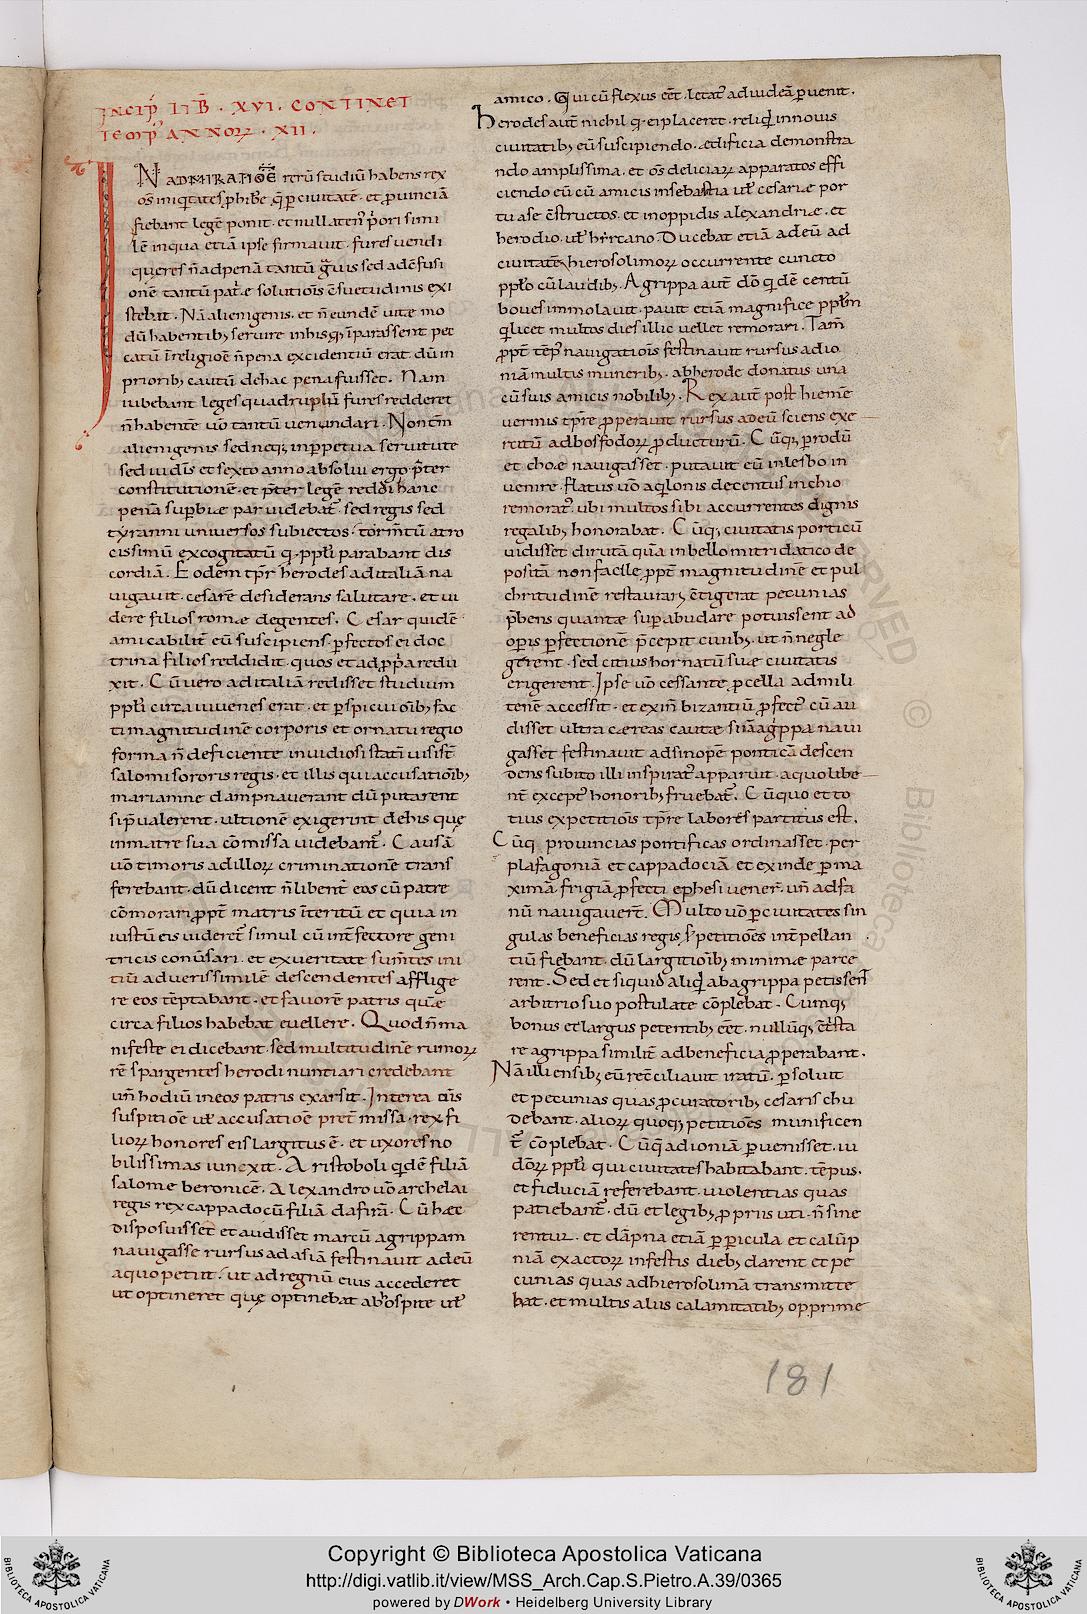 INCIP̄ LIB̄ · XVI · CONTINET
TEMP̄ ANNORꝜ · XII ·
IN ADMINRATIOĒ rerū studiū habens rex
os iniq̇tates p̱hibe, q̄ ꝑ ciuitatē · et ꝓuinciā
fiebant legē ponit · et nullatenꝰ p̄ori simi
lē inqua etiā ipse firmauit · fures uendi
querēs n̄ ad penā tantū g̊uis sed ad effusi
onē tantū pat̄e solutiois ꝯsuetudinis exi
stebat · Nā alienigenis · et n̄ eundē uitae mo
dū habentibꝫ seruire in his, q̇ īparassent pec
catū ī religioē n̄ pena excidentiū erat · dū in
prioribꝫ cautū de hac pena fuisset · Nam
iubebant leges quadruplū fures redderet
n̄ habentē uō tantū uenundari · Non tm̄
alienigenis sed neqꝫ in ꝑpetua seruitute
sed iudīs et sexto anno absolui ergo p̄ter
constitutionē · et p̄ter legē reddi hanc
penā suꝑbiae par uidebat᷑ · sed regis sed
tyranni uniuersos subiectos · tormtū atro
cissimū excogitatū q · ppłi parabant dis
cordiā · Eodem tꝑr herodes ad italiā na
uigauit · cesarē desiderans salutare · et ui
dere filios romae degentes · Cesar quidē
amicabilit᷑ eū suscipiens ꝑfectos ei doc
trina filios reddidit · quos et ad ꝓpͥa redu
xit · Cū uero ad italiā redisset studium
ppłi circa iuuenes erat · et ꝑspicui oībꝫ fac
ti magnitudinē corporis et ornatu regio
forma n̄ deficiente inuidiosi statī uisi sꝭ
salomi sororis regis · et illis qui accusatiōibꝫ
mariamne dampnauerant dū putarent
si p̄ualerent · ultionē exigerint de his quę
in matre sua cōmissa uidebant᷑ · Causā
uō timoris ad illorꝝ criminationē trans
ferebant · dū dicent n̄ libent᷑ eos cū patre
cōmorari ꝓpt᷑ matris īteritū et quia in
iustū eis uideret᷑ simul cū int᷑fectore geni
tricis conūsari · et ex ueritate sum̄tes ini
tiū ad uerissimilē descendentes afflige
re eos tēptabant · et fauorē patris · quē
circa filios habebat euellere · Quod n̄ ma
nifeste ei dicebant · sed multitudinē rumorꝝ
rē spargentes herodi nuntiari credebant
un̄ hodiū in eos patris exarsit · Interea oīs
suspitiōe uł accusatiōe p̄ret᷑missa · rex fi
liorꝝ honores eis largitus ē · et uxores no
bilissimas iunexit · Aristoboli q̇dē filiā
salome beronicē · Alexandro uō archelai
regis rex cappadocū filiā dafirā · Cū haec
disposuisset et audisset marcū agrippam
nauigasse rursus ad asiā festinauit ad eū
a quo petiit · ut ad regnū eius accederet
ut optineret quę optinebat ab ospite uł
amico · Qui cū flexus eēt · letat᷑ ad iudeā ꝑuenit ·
Herodes aut̄ nichil q · ei placeret · reliq̇t in nouis
ciuitatibꝫ eū suscipiendo · aedificia demonstra
ndo amplissima · et os̄ deliciarꝝ apparatos effi
ciendo eū cū amicis in sebastia uł cesariae por
tu a se ꝯstructos · et in oppidis alexandriae · et
herodio · uł hyrcano · Ducebat etiā ad eū ad
ciuitatē hierosolimorꝝ occurrente cuncto
ppło cū laudibꝫ · Agrippa aut̄ dō q̇dē centū
boues immolauit · pauit etiā magnifice ppłm
q̇licet multos dies illic uellet remorari · Tam̄
ꝓpt᷑ tēp᷑ nauigatiois festinauit rursus ad io
niā multis muneribꝫ · ab herode donatus una
cū suis amicis nobilibꝫ · Rex aut̄ post hiemē
uernis tp̄re ꝓperauit rursus ad eū sciens exe
rcitū ad bosfodorꝝ ꝓducturū · Cūqꝫ ꝑ rodū
et choae nauigasset · putauit eū in lesbo in
uenire · Flatus uō aq̇lonis decentus in chio
remorat᷑ · ubi multos sibi accurrentes dignis
regalibꝫ honorabat · Cūqꝫ ciuitatis porticū
uidisset dirutā quā in bello mitridatico de
positā non facile ꝓpt᷑ magnitudinē et pul
chritudinē restaurarꝫ ꝯtigerat pecunias
p̄bens quantae suꝑabudare potuissent ad
oꝑis ꝑfectionē p̄cepit ciuibꝫ · ut n̄ negle
gerent · sed citius hornatū suae ciuitatis
erigerent · Ipse uō cessante ꝓcella ad mili
tenē accessit · et exin̄ bizantiū ꝓfect᷑ cū au
disset ultra caereas cautae sum̄ agͥppa naui
gasset festinauit ad sinopē ponticā descen
dens subito illi insperat᷑ apparuit · a quo libe
nt᷑ except᷑ honoribꝫ fruebat᷑ · Cūquo et to
tius expetitiois tp̄re labores partitus est ·
Cūq prouincias pontificas ordinasset · per
plafagoniā et cappadociā et ex inde ꝑ ma
ximā frigiā ꝓfecti ephesi uener̄ · un̄ ad fa
nū nauigauer̄t · Multo uō ꝑ ciuitates sin
gulas beneficias regis ꝑ petitiōes int᷑pellan
tiū fiebant · dū largitioībꝫ minimae parce
rent · Sed et siquid aliq̇d ab agrippa petissent
arbitrio suo postulate cōplebat · Cumqꝫ
bonus et largus petentibꝫ eēt · nullūqꝫ ꝯtͥsta
re agrippa similit᷑ ad beneficia ꝓperabant ·
Nā illiensibꝫ eū recͨiliauit iratū · ꝑsoluit
et pecunias quas ꝓcuratoribꝫ cesaris chii
debant · aliorꝝ quoqꝫ petitiōes munificen
t᷑ cōplebat · Cūq ad ioniā ꝑuenisset · iu
dēorꝝ ppłi qui ciuitates habitabant · tēpus ·
et fiduciā referebant · uiolentias quas
patiebant᷑ · dū et legibꝫ ꝓpriis uti · n̄ sine
rentur · et dāpna etiā ꝑ ꝑicula et calūp
niā exactorꝝ infestis diebꝫ darent et pe
cunias quas ad hierosolimā transmitte
bat · et multis aliis calamitatibꝫ opprime
181
Copyright © Biblioteca Apostolica Vaticana
http://digi.vatlib.it/view/MSS_Arch.Cap.S.Pietro.A.39/0365
powered by DWork • Heidelberg University Library